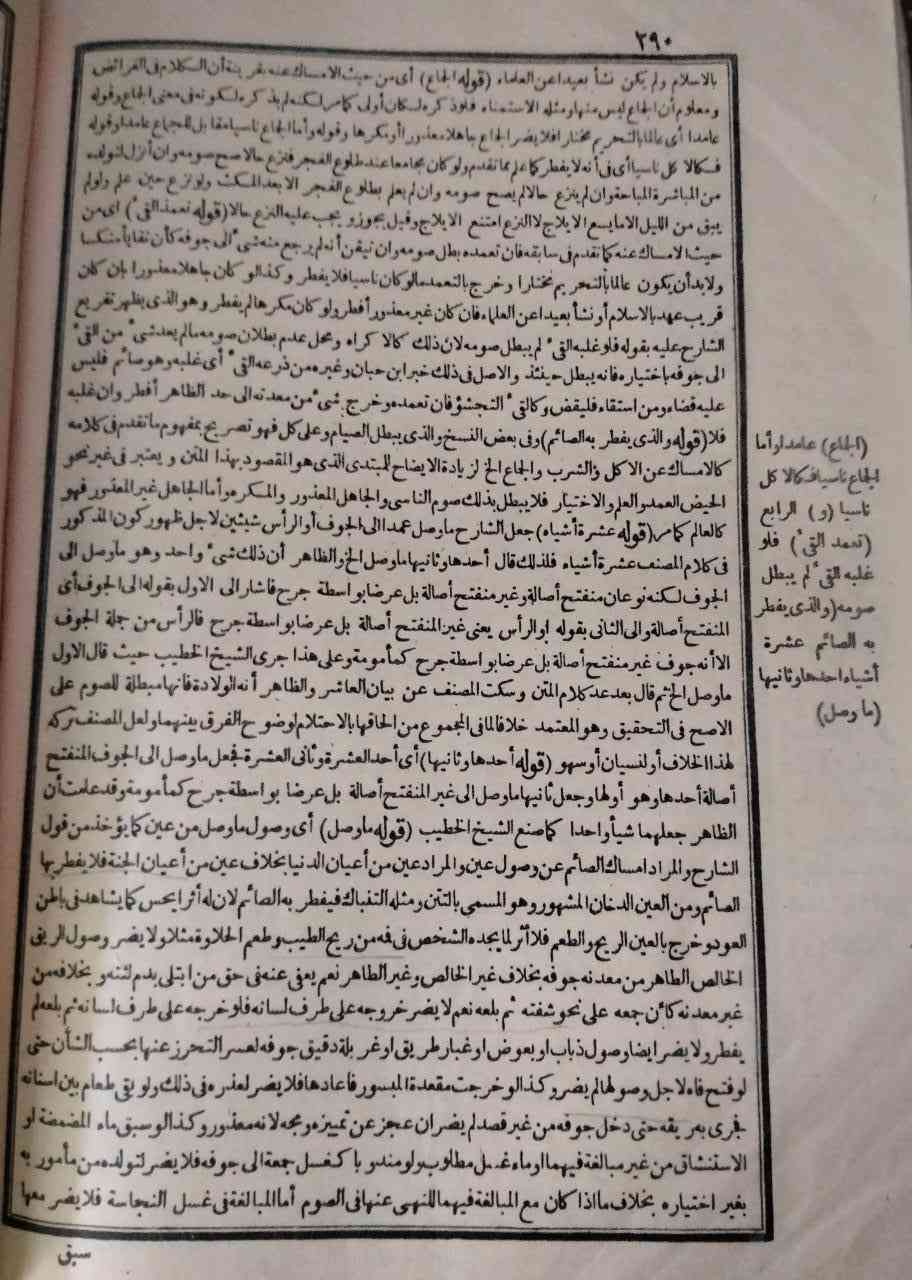 ٢٩٠
بالاسلام ولم يكن نشأ بعيدا عن العلماء (قوله الجماع) أى من حيث الامساك عنه بقرينة أن الكلام فى الفرائض
ومعلوم أن الجماع ليس منها ومثله الاستمناء فلو ذكره لكان أولى كما مر لكنه لم يذكره لكونه فى معنى الجماع وقوله
عامدا أى عالما بالتحريم مختارا فلا يضر الجماع جاهلا معذورا أو مكرها وقوله وأما الجماع ناسيا مقابل للجماع عامدا وقوله
فكالا كل ناسيا أى فى أنه لا يفطر كما علم مما تقدم ولو كان مجامعا عند طلوع الفجر فنزع حالا صح صومه وان أنزل لتولده
من المباشرة المباحة وان لم ينزع حالا لم يصح صومه وان لم يعلم بطلوع الفجر الا بعد المكث ولو نزع حين علم ولو لم
يبق من الليل الا ما يسع الايلاج لا النزع امتنع الايلاج وقيل يجوز ويجب عليه النزع حالا (قوله تعمد القىء) اى من
حيث الامساك عنه كما تقدم فى سابقه فان تعمده بطل صومه وان تيقن أنه لم يرجع منه شىء الى جوفه كأن تقايأ منكسا
ولابد أن يكون عالما بالتحريم مختارا وخرج بالتعمد ما لو كان ناسيا فلا يفطر وكذا لو كان جاهلا معذورا بان كان
قريب عهد بالاسلام أو نشأ بعيدا عن العلماء فان كان غير معذور أفطر ولو كان مكرها لم يفطر وهو الذى يظهر تفريع
الشارح عليه بقوله فلو غلبه القىء لم يبطل صومه لان ذلك كالا كراه ومحل عدم بطلان صومه ما لم يعد شىء من القىء
الى جوفه باختياره فانه يبطل حينئذ والاصل فى ذلك خبر ابن حبان وغيره من ذرعه القىء أى غلبه وهو صائم فليس
عليه قضاء ومن استقاء فليقض وكالقىء التجشؤ فان تعمده وخرج شىء من معدته الى حد الظاهر أفطر وان غلبه
فلا (قوله والذى يفطر به الصائم) وفى بعض النسخ والذى يبطل الصيام وعلى كل فهو تصريح بمفهوم ما تقدم فى كلامه
كالامساك عن الاكل والشرب والجماع الخ لزيادة الايضاح للمبتدى الذى هو المقصود بهذا المتن ويعتبر فى غير نحو
الحيض العمد والعلم والاختيار فلا يبطل بذلك صوم الناسى والجاهل المعذور والمكره وأما الجاهل غير المعذور فهو
كالعالم كما مر (قوله عشرة أشياء) جعل الشارح ما وصل عمدا الى الجوف أو الرأس شيئين لاجل ظهور كون المذكور
فى كلام المصنف عشرة أشياء فلذلك قال أحدها وثانيها ما وصل الخ والظاهر أن ذلك شىء واحد وهو ما وصل الى
الجوف لكنه نوعان منفتح أصالة وغير منفتح أصالة بل عرضا بواسطة جرح فاشار الى الاول بقوله الى الجوف أى
المنفتح أصالة والى الثانى بقوله او الرأس يعنى غير المنفتح أصالة بل عرضا بواسطة جرح فالرأس من جملة الجوف
الا أنه جوف غير منفتح أصالة بل عرضا بواسطة جرح كمأمومة وعلى هذا جرى الشيخ الخطيب حيث قال الاول
ما وصل الخ ثم قال بعد عد كلام المتن وسكت المصنف عن بيان العاشر والظاهر أنه الولادة فانها مبطلة للصوم على
الاصح فى التحقيق وهو المعتمد خلافا لما فى المجموع من الحاقها بالاحتلام لوضوح الفرق بينهما ولعل المصنف تركه
لهذا الخلاف أو لنسيان أو سهو (قوله أحدها وثانيها) أى أحد العشرة وثانى العشرة فجعل ما وصل الى الجوف المنفتح
أصالة أحدها وهو أولها وجعل ثانيها ما وصل الى غير المنفتح أصالة بل عرضا بواسطة جرح كمأمومة وقد علمت أن
الظاهر جعلهما شيأ واحدا كما صنع الشيخ الخطيب (قوله ما وصل) أى وصول ما وصل من عين كما يؤخذ من قول
الشارح والمراد امساك الصائم عن وصول عين والمراد عين من أعيان الدنيا بخلاف عين من أعيان الجنة فلا يفطر بها
الصائم ومن العين الدخان المشهور وهو المسمى بالتتن ومثله التنباك فيفطر به الصائم لان له أثرا يحس كما يشاهد فى باطن
العود وخرج بالعين الريح والطعم فلا أثر لما يجده الشخص فى فمه من ريح الطيب وطعم الحلاوة مثلا ولا يضر وصول الريق
الخالص الطاهر من معدنه جوفه بخلاف غير الخالص وغير الطاهر نعم يعفى عنه فى حق من ابتلى بدم لثته وبخلافه من
غير معدنه كأن جمعه على نحو شفته ثم بلعه نعم لا يضر خروجه على طرف لسانه فلو خرجه على طرف لسانه ثم بلعه لم
يفطر ولا يضر ايضا وصول ذباب او بعوض او غبار طريق او غربلة دقيق جوفه لعسر التحرز عنها بحسب الشأن حتى
لو فتح فاه لاجل وصولها لم يضر وكذا لو خرجت مقعدة المبسور فاعادها فلا يضر لعذره فى ذلك ولو بقى طعام بين اسنانه
فجرى به ريقه حتى دخل جوفه من غير قصد لم يضر ان عجز عن تمييزه ومجه لانه معذور وكذا لو سبق ماء المضمضة او
الاستنشاق من غير مبالغة فيهما او ماء غسل مطلوب ولو مندوبا كغسل جمعة الى جوفه فلا يضر لتولده من مأمور به
بغير اختياره بخلاف ما اذا كان مع المبالغة فيهما للنهى عنها فى الصوم أما المبالغة فى غسل النجاسة فلا يضر معها
سبق
(الجماع) عامدا وأما
الجماع ناسيا فكالا كل
ناسيا (و) الرابع
(تعمد القىء) فلو
غلبه القىء لم يبطل
صومه (والذى يفطر
به الصائم عشرة
أشياء أحدها وثانيها
(ما وصل)